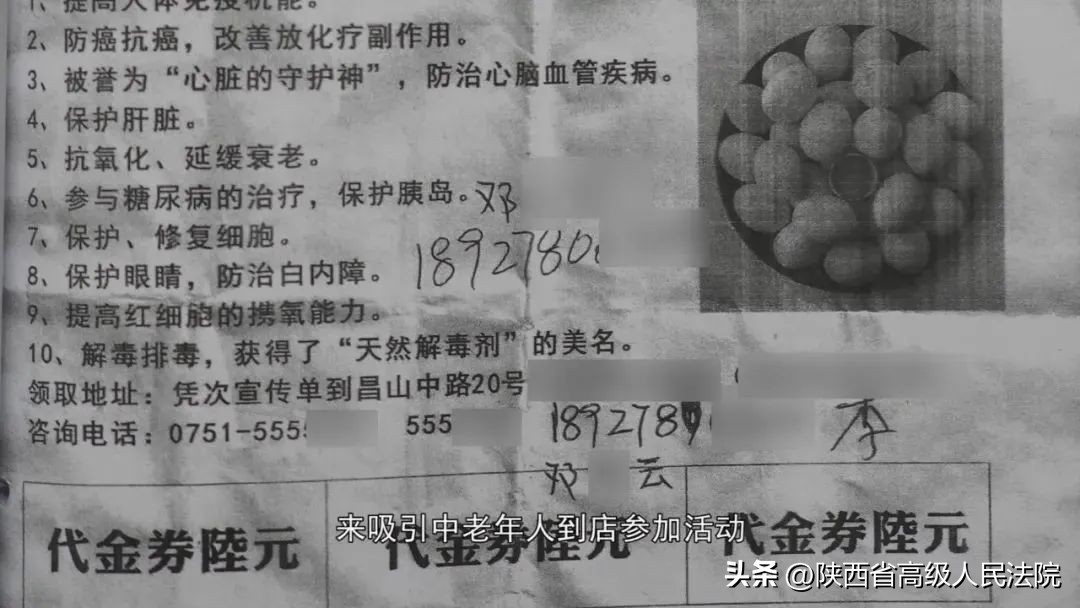 1、提高人体免疫机能。
2、防癌抗癌，改善放化疗副作用。
3、被誉为“心脏的守护神”，防治心脑血管疾病。
4、保护肝脏。
5、抗氧化、延缓衰老。
6、参与糖尿病的治疗，保护胰岛。邓
7、保护、修复细胞。
1892780
8、保护眼睛，防治白内障。
9、提高红细胞的携氧能力。
10、解毒排毒，获得了“天然解毒剂”的美名。
领取地址：凭次宣传单到昌山中路20号
咨询电话：0751-555 555 1892789 李
邓 云
代金券陸元 代金券陸元 代金券陸元
来吸引中老年人到店参加活动
头条 @陕西省高级人民法院